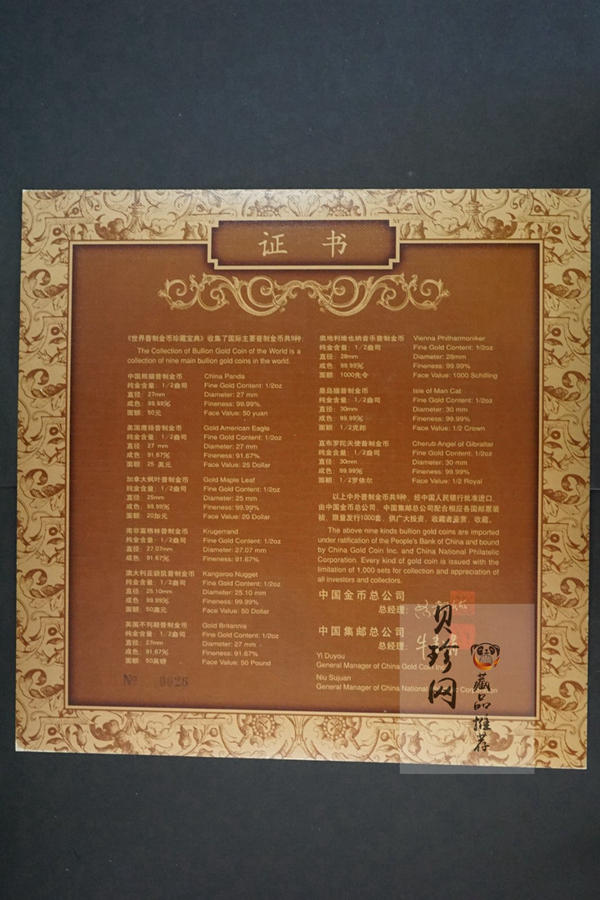 证 书
《世界普制金币珍藏宝典》收集了国际主要普制金币共9种:
The Collection of Bullion Gold Coin of the World is a
collection of nine main bullion gold coins in the world.
中国熊猫普制金币 China Panda
纯金含量: 1/2盎司 Fine Gold Content: 1/2oz
直径: 27mm Diameter: 27 mm
成色: 99.99% Fineness: 99.99%
面额: 50元 Face Value: 50 yuan
美国鹰扬普制金币 Gold American Eagle
纯金含量: 1/2盎司 Fine Gold Content: 1/2oz
直径: 27 mm Diameter: 27 mm
成色: 91.67% Fineness: 91.67%
面额: 25 美元 Face Value: 25 Dollar
加拿大枫叶普制金币 Gold Maple Leaf
纯金含量: 1/2盎司 Fine Gold Content: 1/2oz
直径: 25mm Diameter: 25 mm
成色: 99.99% Fineness: 99.99%
面额: 20加元 Face Value: 20 Dollar
南非富格林普制金币 Krugerrand
纯金含量: 1/2盎司 Fine Gold Content: 1/2oz
直径: 27.07mm Diameter: 27.07 mm
成色: 91.67% Fineness: 91.67%
澳大利亚袋鼠普制金币 Kangaroo Nugget
纯金含量: 1/2盎司 Fine Gold Content: 1/2oz
直径: 25.10mm Diameter: 25.10 mm
成色: 99.99% Fineness: 99.99%
面额: 50澳元 Face Value: 50 Dollar
英国不列颠普制金币 Gold Britannia
纯金含量: 1/2盎司 Fine Gold Content: 1/2oz
直径: 27mm Diameter: 27 mm
成色: 91.67% Fineness: 91.67%
面额: 50英镑 Face Value: 50 Pound
№ 0026
奥地利维也纳音乐普制金币 Vienna Philharmoniker
纯金含量: 1/2盎司 Fine Gold Content: 1/2oz
直径: 28mm Diameter: 28mm
成色: 99.99% Fineness: 99.99%
面额: 1000先令 Face Value: 1000 Schilling
曼岛猫普制金币 Isle of Man Cat
纯金含量: 1/2盎司 Fine Gold Content: 1/2oz
直径: 30mm Diameter: 30 mm
成色: 99.99% Fineness: 99.99%
面额: 1/2克郎 Face Value: 1/2 Crown
直布罗陀天使普制金币 Cherub Angel of Gibraltar
纯金含量: 1/2盎司 Fine Gold Content: 1/2oz
直径: 30mm Diameter: 30 mm
成色: 99.99% Fineness: 99.99%
面额: 1/2罗依尔 Face Value: 1/2 Royal
以上中外普制金币共9种, 经中国人民银行批准进口,
由中国金币总公司、中国集邮总公司配合相应各国邮票装
帧, 限量发行1000套, 供广大投资、收藏者鉴赏、收藏。
The above nine kinds bullion gold coins are imported
under ratification of the People's Bank of China and bound
by China Gold Coin Inc. and China National Philatelic
Corporation. Every kind of gold coin is issued with the
limitation of 1,000 sets for collection and appreciation of
all investors and collectors.
中国金币总公司
总经理:
中国集邮总公司
总经理:
Yi Duyou
General Manager of China Gold Coin Inc.
Niu Sujuan
General Manager of China National Philatelic Corporation
贝珍网
藏品推荐